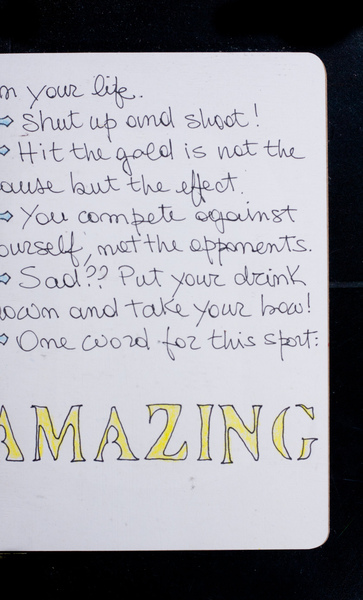 in your life.
Shut up and shoot!
Hit the gold is not the
ause but the effect.
You compete against
ourself, not the opponents.
Sad?? Put your drink
own and take your bow!
One word for this sport:
AMAZING